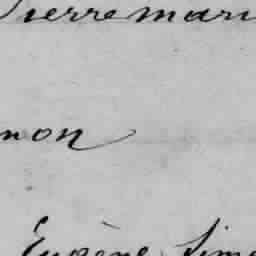 Pierre mari
non
Eugène Simo